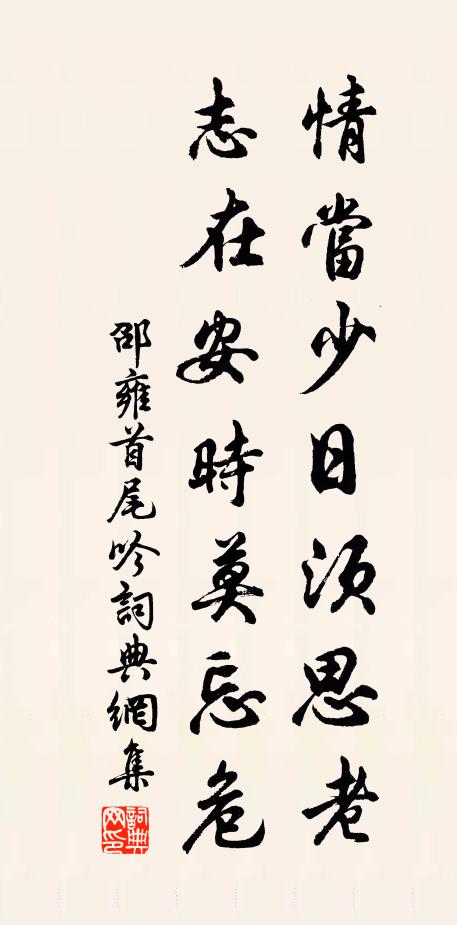 情當少日須思老
志在安時莫忘危
邵雍首尾吟詞典網集
詞典網印